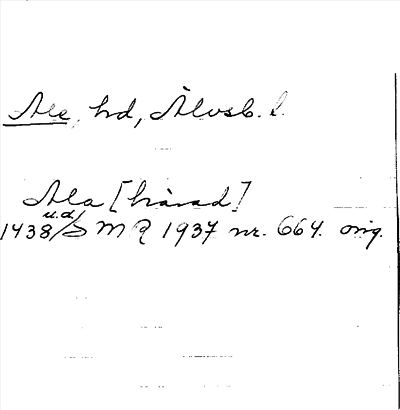 Ale, hd, Älvsb. l.
Ala [härad]
u.d.
1438/S M R 1937 nr. 664. orig.